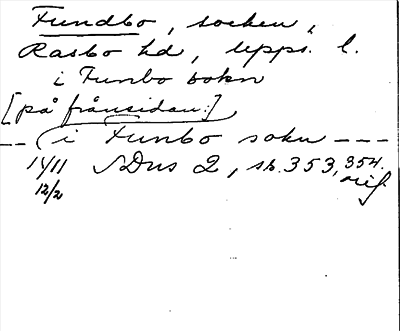 Fundbo, socken,
Rasbo hd, Upps. l.
i Funbo sokn
[på frånsidan:]
-- i Funbo sokn ---
14/11 SDns 2, sh. 353, 354.
12/2 orig.